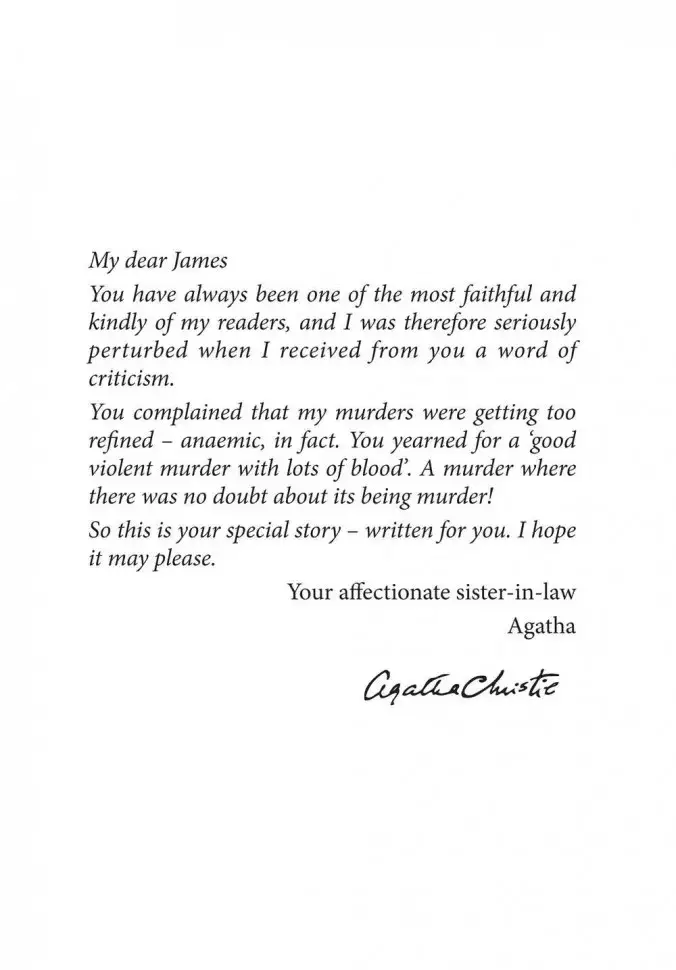 My dear James
You have always been one of the most faithful and
kindly of my readers, and I was therefore seriously
perturbed when I received from you a word of
criticism.
You complained that my murders were getting too
refined – anaemic, in fact. You yearned for a ‘good
violent murder with lots of blood’. A murder where
there was no doubt about its being murder!
So this is your special story – written for you. I hope
it may please.
Your affectionate sister-in-law
Agatha
Agatha Christie